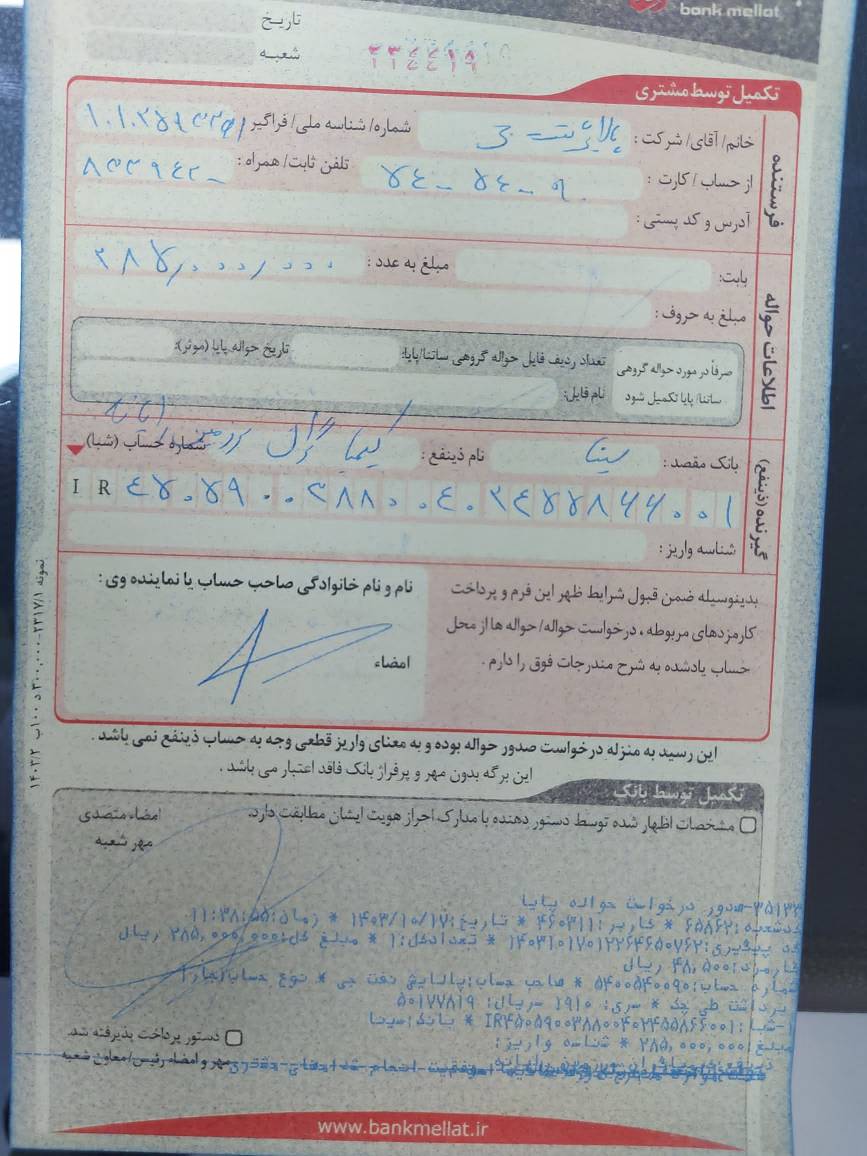 bank mellat
تاریخ
شعبه
۲۲٤٤۱۹
تکمیل توسط مشتری
فرستنده
خانم/ آقای/ شرکت : پالایش نفت جی شماره/ شناسه ملی/ فراگیر
از حساب / کارت : تلفن ثابت/ همراه :
آدرس و کد پستی :
اطلاعات حواله
بابت: مبلغ به عدد : ۲۸۵,۰۰۰,۰۰۰
مبلغ به حروف :
صرفاً در مورد حواله گروهی ساتنا/ پایا تکمیل شود
تعداد ردیف فایل حواله گروهی ساتنا/پایا: تاریخ حواله پایا (موثر):
نام فایل:
گیرنده (ذینفع)
بانک مقصد : سینا نام ذینفع : کیمیا شماره حساب (شبا)
IR ٤۵۰۵۹۰۰۳۸۸۰۰٤۰۲٤۵۵۸۶۶۰۰۱
شناسه واریز :
بدینوسیله ضمن قبول شرایط ظهر این فرم و پرداخت
کارمزدهای مربوطه ، درخواست حواله/ حواله ها از محل
حساب یادشده به شرح مندرجات فوق را دارم .
نام و نام خانوادگی صاحب حساب یا نماینده وی :
امضاء
این رسید به منزله درخواست صدور حواله بوده و به معنای واریز قطعی وجه به حساب ذینفع نمی باشد .
این برگه بدون مهر و پرفراژ بانک فاقد اعتبار می باشد .
تکمیل توسط بانک
مشخصات اظهار شده توسط دستور دهنده با مدارک احراز هویت ایشان مطابقت دارد.
امضاء متصدی
مهر شعبه
۳۵۱۳۲-صدور درخواست حواله پایا
کدشعبه:۶۵۸۶۲ * کاربر:۴۶۰۳۱۱ * تاریخ:۱۴۰۳/۱۰/۱۷ * زمان:۱۱:۳۸:۵۵
کد پیگیری:۱۴۰۳۱۰۱۷۰۱۲۲۶۴۶۵۰۷۶۲ * تعدادکل:۱ * مبلغ کل:۲۸۵,۰۰۰,۰۰۰ ریال
کارمزد:۴۸,۵۰۰ ریال
شماره حساب:۵۴۰۰۵۴۰۰۹۰ * صاحب حساب:پالایش نفت جی * نوع حساب:جارا
برداشت طی چک * سری: ۱۹۱۰ سریال: ۵۰۱۷۷۸۱۹
۱-شبا:IR۴۵۰۵۹۰۰۳۸۸۰۰۴۰۲۴۵۵۸۶۶۰۰۱ * بانک:سینا
مبلغ:۲۸۵,۰۰۰,۰۰۰ * شناسه واریز:
دستور پرداخت پذیرفته شد.
مهر و امضاء رئیس/ معاون شعبه
www.bankmellat.ir
نمونه ۲۳۱۷/۱-۳۰۰,۰۰۰ د ۱۰۰ ب ۱۴۰۳/۲